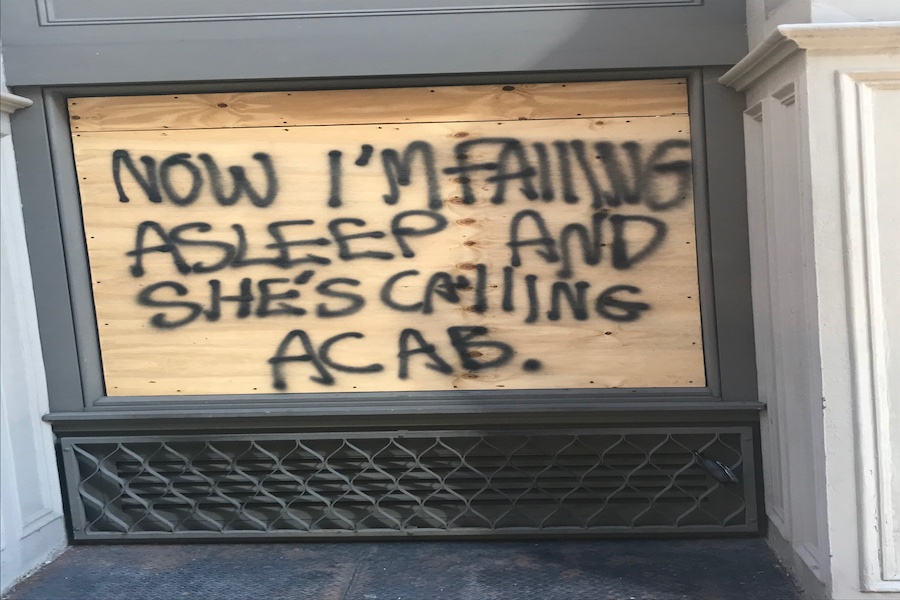 NOW I'M FALLING
ASLEEP AND
SHE'S CALLING
ACAB.